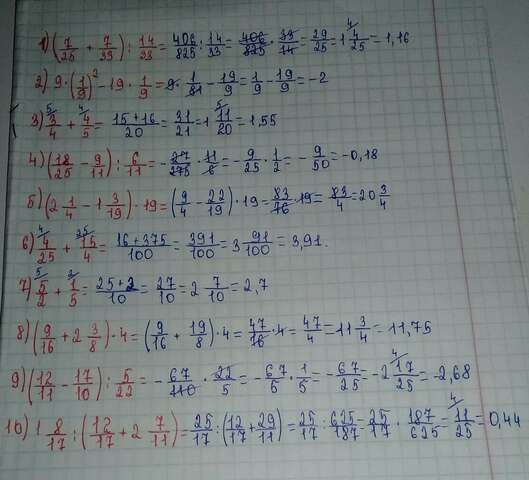 1) (7/25 + 7/33) : 14/33 = 406/825 : 14/33 = 406/825 · 33/14 = 29/25 = 1 4/25 = 1,16
2) 9 · (1/9)² - 19 · 1/9 = 9 · 1/81 - 19/9 = 1/9 - 19/9 = -2
3) 3/4 + 4/5 = 15+16/20 = 31/21 = 1 11/20 = 1,55
4) (18/25 - 9/11) : 6/11 = - 27/275 · 11/6 = - 9/25 · 1/2 = - 9/50 = -0,18
5) (2 1/4 - 1 3/19) · 19 = (9/4 - 22/19) · 19 = 83/76 · 19 = 83/4 = 20 3/4
6) 4/25 + 15/4 = 16+375/100 = 391/100 = 3 91/100 = 3,91.
7) 5/2 + 1/5 = 25+2/10 = 27/10 = 2 7/10 = 2,7
8) (9/16 + 2 3/8) · 4 = (9/16 + 19/8) · 4 = 47/16 · 4 = 47/4 = 11 3/4 = 11,75
9) (12/11 - 17/10) : 5/22 = - 67/110 · 22/5 = - 67/5 · 1/5 = - 67/25 = -2 17/25 = -2,68
10) 1 8/17 : (12/17 + 2 7/11) = 25/17 : (12/17 + 29/11) = 25/17 : 625/187 = 25/17 · 187/625 = 11/25 = 0,44